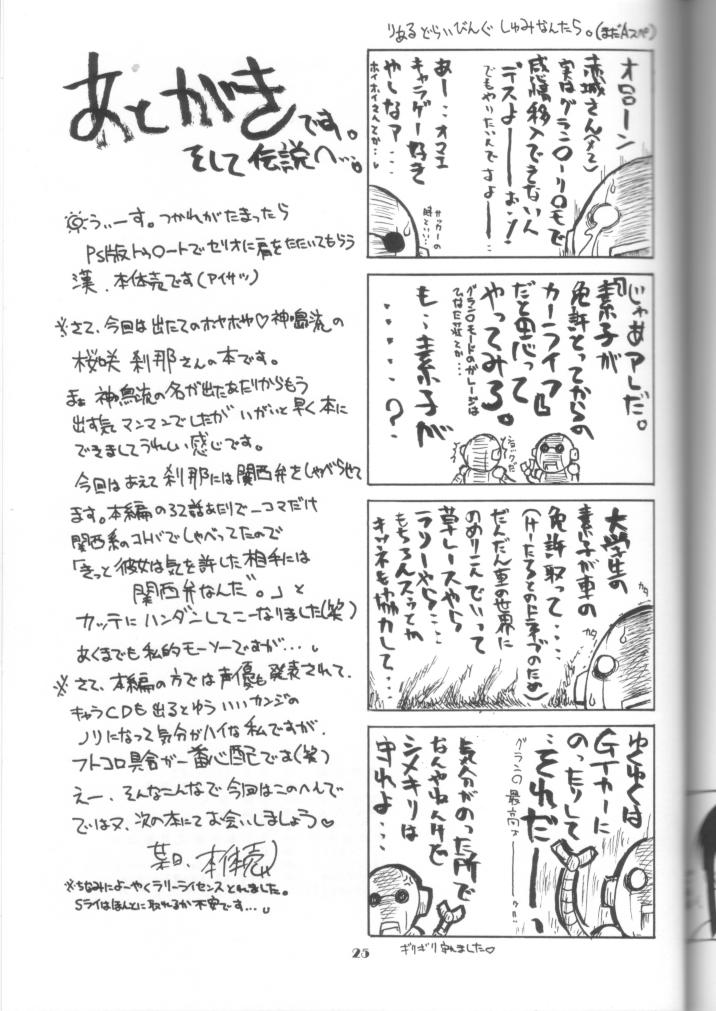 りあるどらいびんぐ しゅみなんたら。(まだAスペ)
あとがきです。
そして伝説へ…。
うぃーす。つかれがたまったら
PS版トゥ○ートでセリオに肩をたたいてもらう
漢、本体売です(アイサツ)
※さて、今回は出たてのホヤホヤ♡神鳴流の
桜咲 刹那さんの本です。
まぁ 神鳴流の名が出たあたりからもう
出す気マンマンでしたが いがいと早く本に
できましてうれしい感じです。
今回はあえて刹那には関西弁をしゃべらせて
ます。本編の37話あたりで一コマだけ
関西系のコトバでしゃべってたので
「きっと彼女は気を許した相手には
関西弁なんだ。」と
カッテにハンダンしてこーなりました(笑)
あくまでも私的モーソーですが…。
※さて、本編の方では声優も発表されて、
キャラCDも出るとゆういいカンジの
ノリになって気分がハイな私ですが、
フトコロ具合が一番心配です(笑)
えー、そんなこんなで今回はこのへんで
ではヌ、次の本にてお会いしましょう♡
某日、本体売
※ちなみによーやくラリーライセンスとれました。
Sライはほんとに取れるか不安です…。
オローン
赤城さん(メ2)
実はグラン○ーリ○モで
感情移入できない人
デスよーーおッ!
でもやりたいんですよーー
あー…オマエ
キャラゲー好き
やしなァ…
ホイホイさんてか…
サッカーの
時といい…
「じゃあアレだ。
素子が
免許とってからの
カーライフ」
だと思って
やってみろ。
グラン○モードのガレージは
ひなた荘てか…
も、素子が
・・・・・?
ショックだ
大学生の
素子が車の
免許取って……
(けーたろとのドライブのため)
だんだん車の世界に
のめりこんでいって
草レースやら
ラリーやら…
もちろんスゥとか
キツネも協力して…
カタ
カタ
ゆくゆくは
GTカーに
のったりして
…それだーーっ
グラン○最高ォーーッ!!
気分がのった所で
なんやねんけど
シメキリは
守れよ…
ギリギリ守れました♡
25